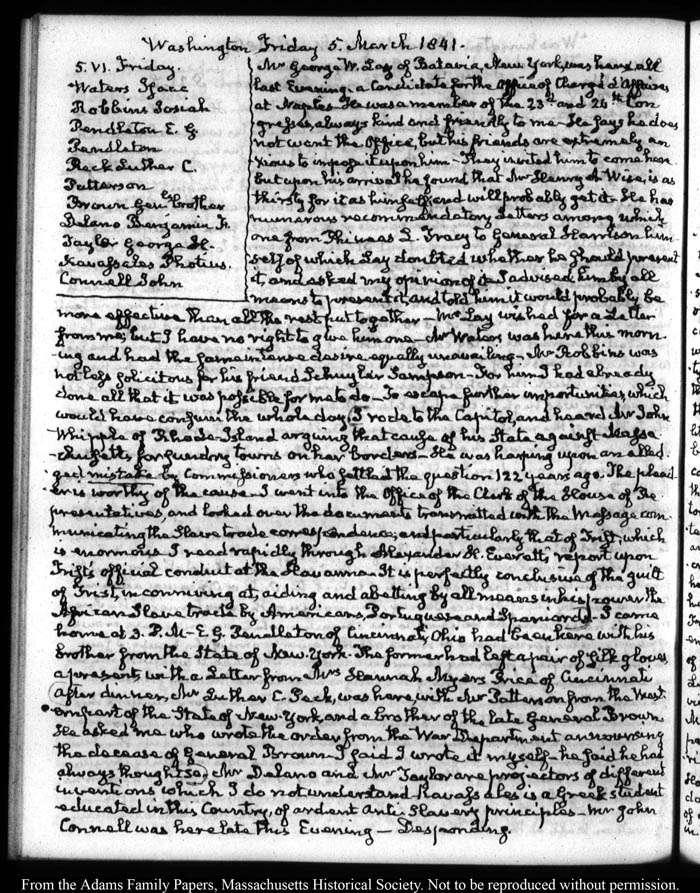 Washington Friday 5. March 1841.
5. VI. Friday.
Waters Isaac
Robbins Josiah
Pendleton E. G.
Pendleton
Peck Luther C.
Patterson
Brown Gen's brother
Delano Benjamin F.
Taylor George H.
Kavassales Photius.
Connell John
Mr George W. Lay of Batavia, New York, was here all
last Evening. a Candidate for the Office of Chargé d'Affaires
at Naples. He was a member of the 23d and 24th Con
gresses, always kind and friendly to me. He says he does
not want the Office, but his friends are extremely an
xious to impose it upon him. They invited him to come here
but upon his arrival he found that Mr Henry A Wise, is as
thirsty for it as himself, and will probably get it. He has
numerous recommendatory Letters among which
one from Phineas L. Tracy to General Harrison him
self, of which Lay doubted whether he should present
it, and asked my opinion of it. I advised him by all
means to present it, and told him it would probably be
more effective than all the rest put together — Mr Lay wished for a Letter
from me, but I have no right to give him one — Mr Waters was here this morn
ing and had the same intense desire equally unavailing — Mr Robbins was
not less solicitous for his friend Schuyler Sampson — For him I had already
done all that it was possible for me to do — To escape further importunities, which
would have consumed the whole day, I rode to the Capitol, and heard Mr John
Whipple of Rhode-Island arguing that cause of his State against Massa
-chusetts, for quendry towns on her borders — He was harping upon an alled
ged mistake by Commissioners who settled the question 122 years ago. The plead
er is worthy of the cause. I went into the Office of the Clerk of the House of Re
presentatives, and looked over the documents transmitted with the Message com
municating the Slave trade correspondence, and particularly that of Trist, which
is enormous. I read rapidly through Alexander H. Everett's report upon
Trist's official conduct at the Havanna. It is perfectly conclusive of the guilt
of Trist, in conniving at, aiding and abetting by all means in his power the
African Slave trade by Americans, Portuguese and Spaniards. I came
home at 3. P. M — E. G. Pendleton of Cincinnati, Ohio had been here with his
brother from the State of New-York. The former had left a pair of silk gloves
a present, with a Letter from Mrs Hannah Myers Price of Cincinnati
After dinner, Mr Luther C. Peck, was here, with Mr Patterson from the West
ern part of the State of New-York, and a brother of the late General Brown
He asked me who wrote the order from the War Department announcing
the decease of General Brown. I said I wrote it myself — he said he had
always thought so. Mr Delano and Mr Taylor are projectors of different
inventions which I do not understand. Kavassales is a Greek student
educated in this Country, of ardent Anti-Slavery principles — Mr John
Connell was here late this Evening — Desponding.
From the Adams Family Papers, Massachusetts Historical Society. Not to be reproduced without permission.